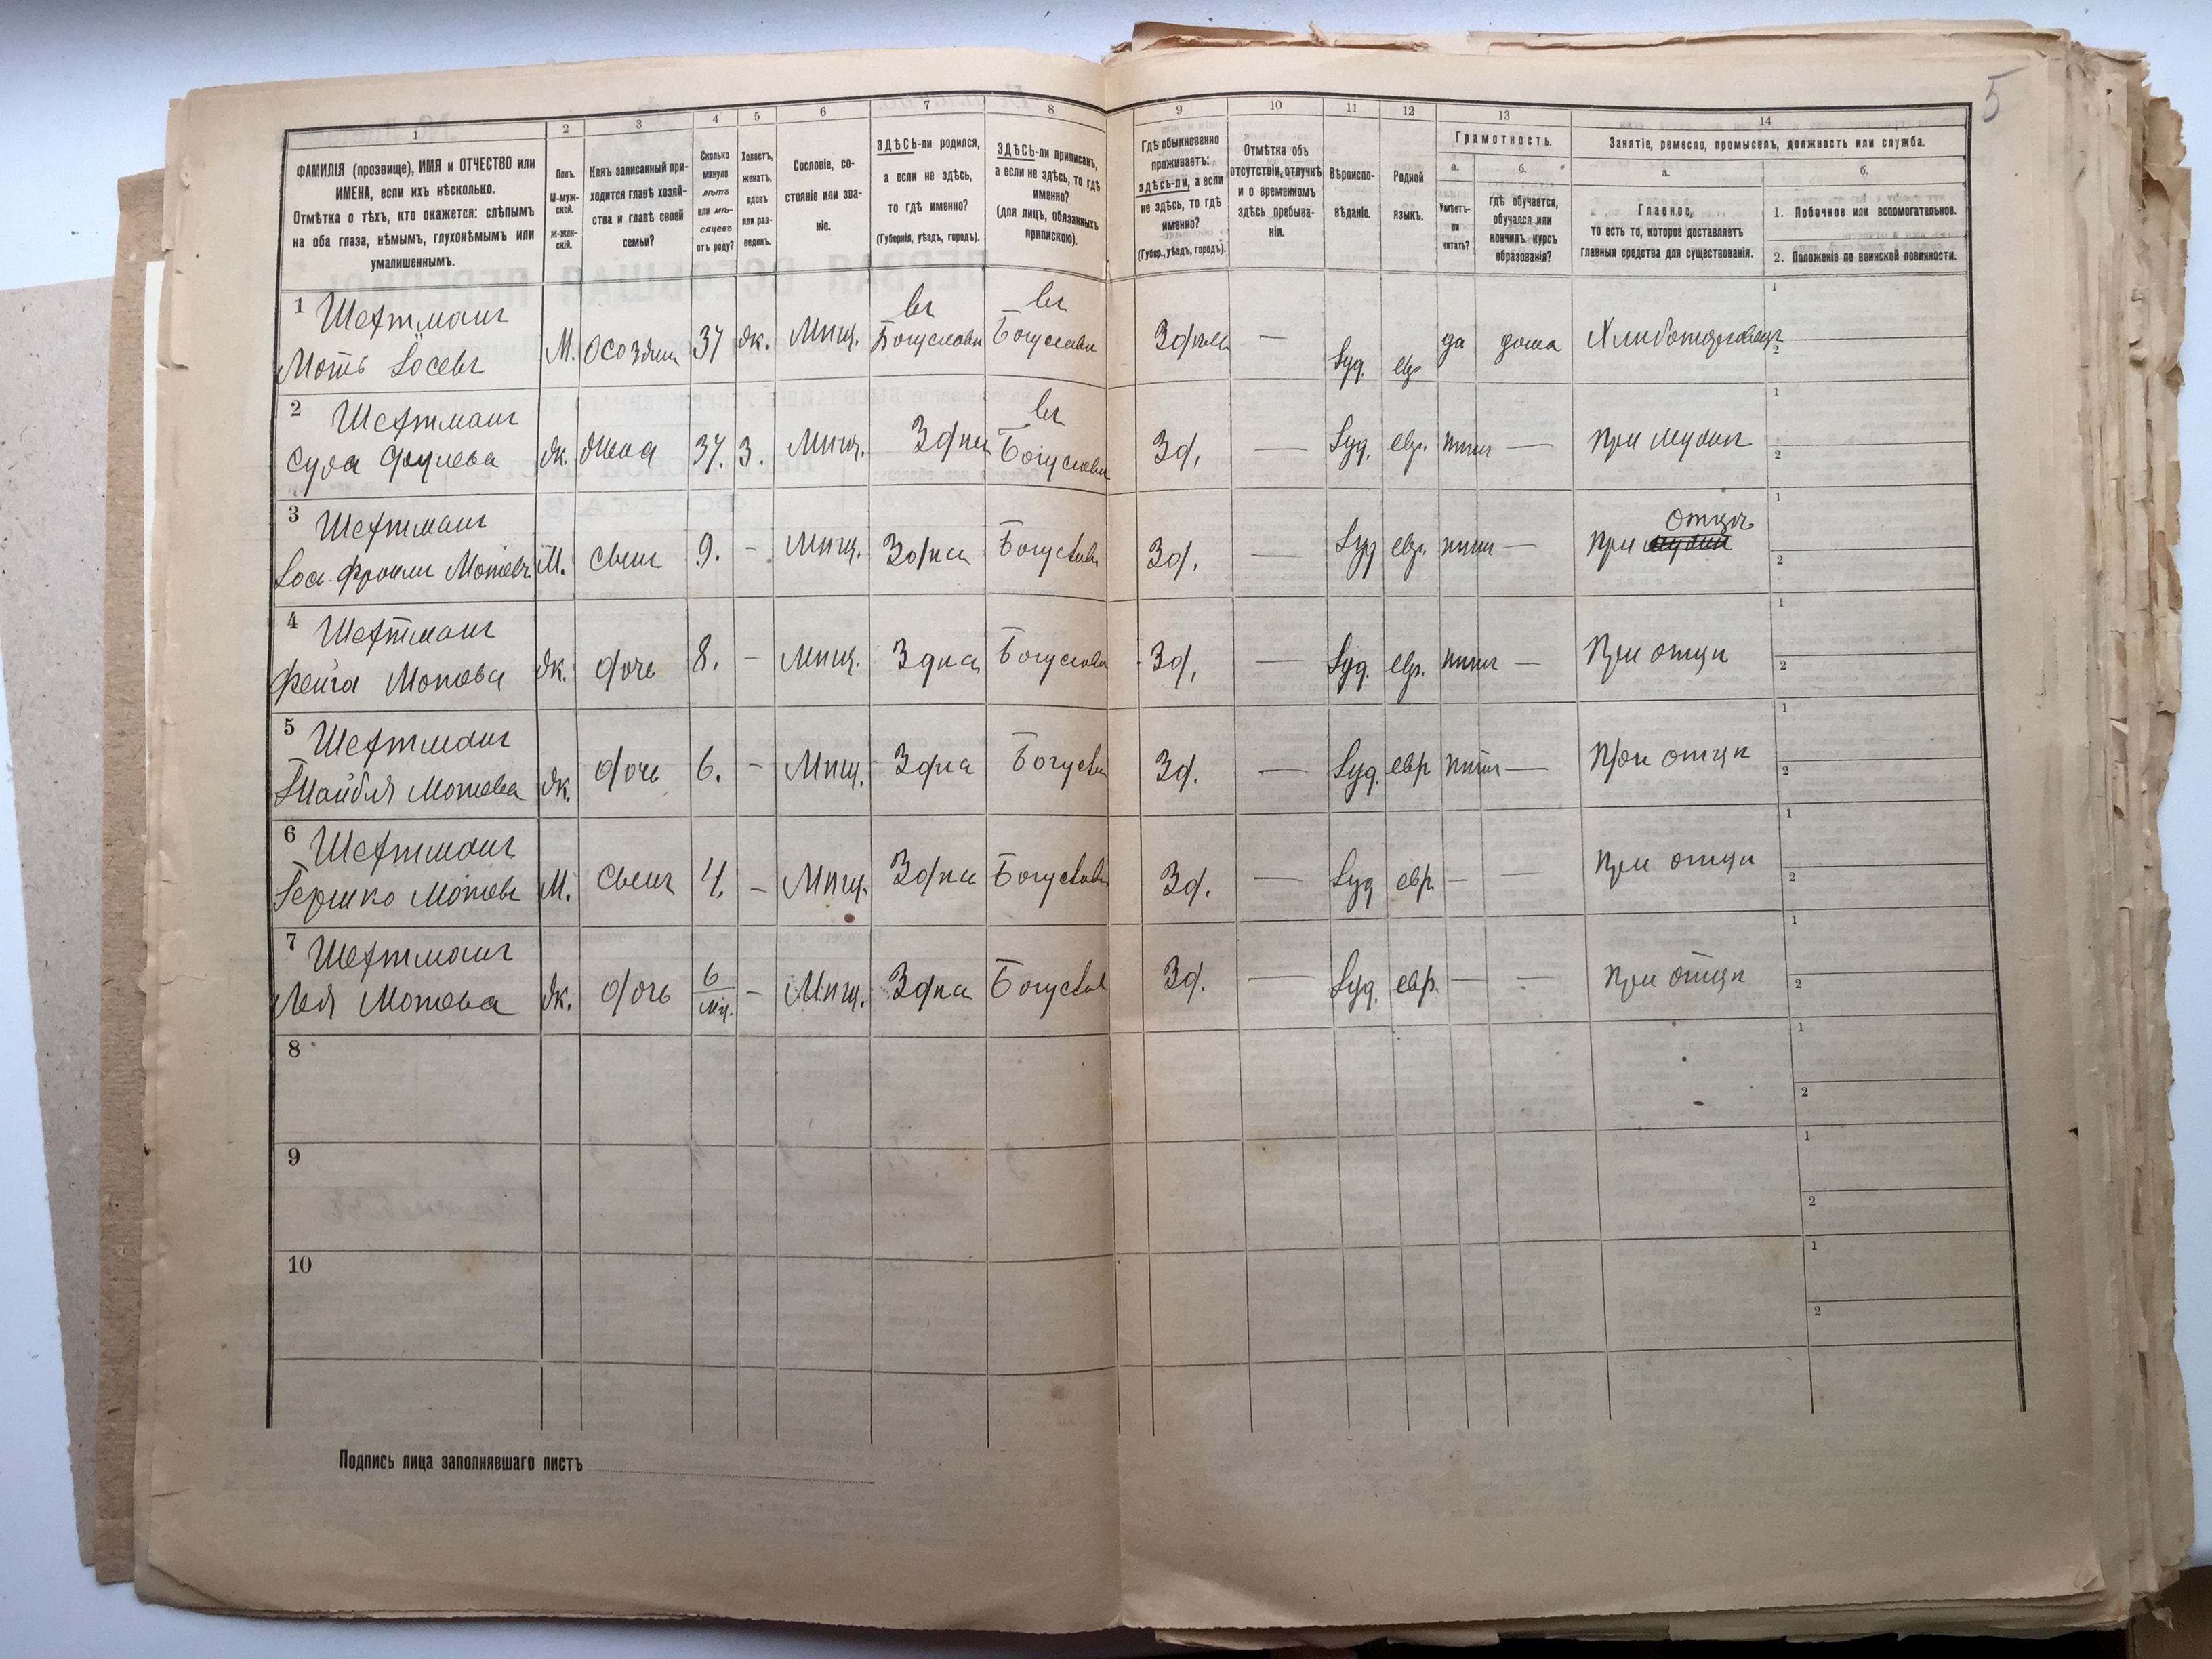 5
1
2
3
4
5
6
7
8
9
10
11
12
13
14
ФАМИЛІЯ (прозвище), ИМЯ и ОТЧЕСТВО или
ИМЕНА, если ихъ нѣсколько.
Отмѣтка о тѣхъ, кто окажется: слѣпымъ
на оба глаза, нѣмымъ, глухонѣмымъ или
умалишеннымъ.
Полъ.
М-муж-
ской.
ж-жен-
скій.
Какъ записанный при-
ходится главѣ хозяй-
ства и главѣ своей
семьи?
Сколько
минуло
лѣтъ
или мѣ-
сяцевъ
отъ роду?
Холостъ,
женатъ,
вдовъ
или раз-
веденъ.
Сословіе, со-
стояніе или зва-
ніе.
ЗДѢСЬ-ли родился,
а если не здѣсь,
то гдѣ именно?
(Губернія, уѣздъ, городъ).
ЗДѢСЬ-ли приписанъ,
а если не здѣсь, то гдѣ
именно?
(для лицъ, обязанныхъ
припискою).
Гдѣ обыкновенно
проживаетъ:
здѣсь-ли, а если
не здѣсь, то гдѣ
именно?
(Губер., уѣздъ, городъ).
Отмѣтка объ
отсутствіи, отлучкѣ
и о временномъ
здѣсь пребыва-
ніи.
Вѣроиспо-
вѣданіе.
Родной
языкъ.
Грамотность.
а.
Умѣетъ-
ли
читать?
б.
гдѣ обучается,
обучался или
кончилъ курсъ
образованія?
Занятіе, ремесло, промыселъ, должность или служба.
а.
Главное,
то есть то, которое доставляетъ
главныя средства для существованія.
б.
1. Побочное или вспомогательное.
2. Положеніе по воинской повинности.
1 Шехтманъ
Моть Іосевъ
М. 37 жк. Мѣщ. въ Богуславѣ въ Богуславѣ Здѣсь — Іуд. евр да дома
1
2
2 Шехтманъ
Сура
жк. жена 37. З. Мѣщ. Здѣсь въ Богуславѣ Зд. — Іуд. евр. нѣтъ — при мужѣ
1
2
3 Шехтманъ
Іось-Фроимъ Мотевъ
М. сынъ 9. — Мѣщ. Здѣсь Богуславѣ Зд. — Іуд евр. нѣтъ — при отцѣ
1
2
4 Шехтманъ
Фейга Мотева
жк. дочь 8. — Мѣщ. Здѣсь Богуславѣ Зд. — Іуд. евр. нѣтъ — При отцѣ
1
2
5 Шехтманъ
Тайбля Мотева
жк. дочь 6. — Мѣщ. Здѣсь Богуславѣ Зд. — Іуд. евр нѣтъ — При отцѣ
1
2
6 Шехтманъ
Гершко Мотевъ
М. сынъ 4. — Мѣщ. Здѣсь Богуславѣ Зд. — Іуд евр. — — при отцѣ
1
2
7 Шехтманъ
Лея Мотева
жк. дочь 6 мц. — Мѣщ. Здѣсь Богуслав Зд. — Іуд. евр. — — при отцѣ
1
2
8
1
2
9
1
2
10
1
2
Подпись лица заполнявшаго листъ